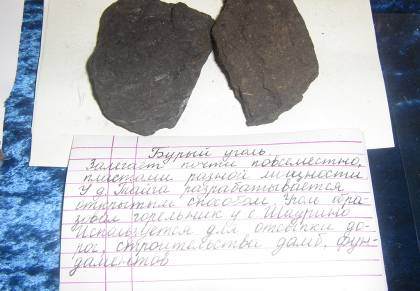 Бурый уголь.
Залегает почти повсеместно,
пластами разной мощности
У д. Тайга разрабатывается
открытым способом. Уголь обра-
зовал горельник у с.
Используется для отсыпки до-
рог, строительства дамб, фун-
даментов